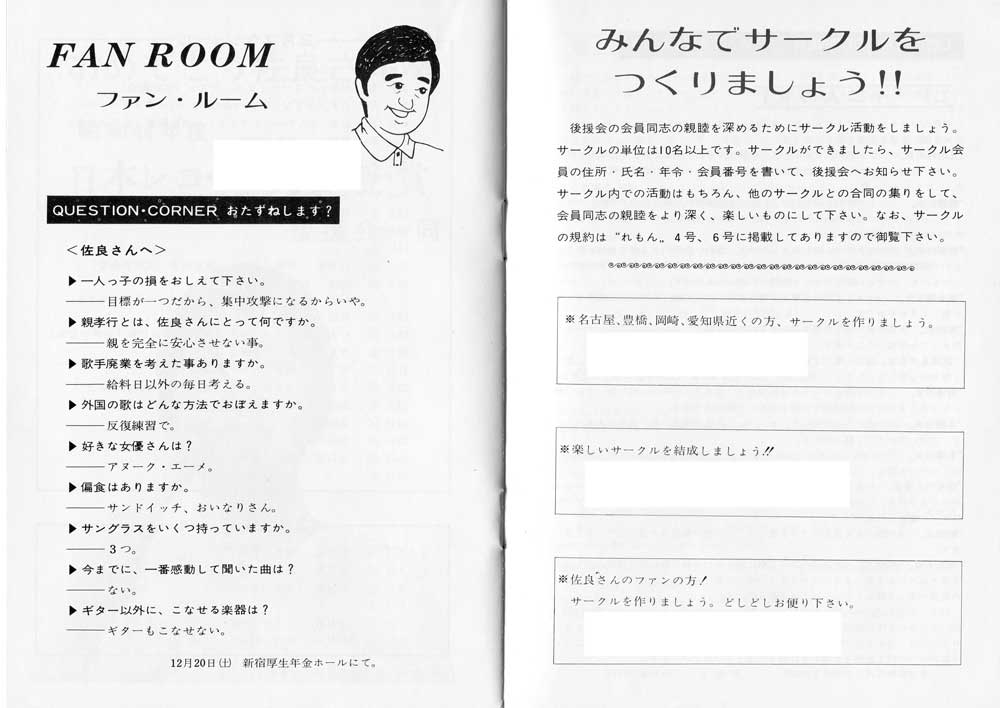 FAN ROOM
ファン・ルーム
QUESTION・CORNER おたずねします?
<佐良さんへ>
▶一人っ子の損をおしえて下さい。
――目標が一つだから、集中攻撃になるからいや。
▶親孝行とは、佐良さんにとって何ですか。
――親を完全に安心させない事。
▶歌手廃業を考えた事ありますか。
――給料日以外の毎日考える。
▶外国の歌はどんな方法でおぼえますか。
――反復練習で。
▶好きな女優さんは?
――アヌーク・エーメ。
▶偏食はありますか。
――サンドイッチ、おいなりさん。
▶サングラスをいくつ持っていますか。
――3つ。
▶今までに、一番感動して聞いた曲は?
――ない。
▶ギター以外に、こなせる楽器は?
――ギターもこなせない。
12月20日(土) 新宿厚生年金ホールにて。
みんなでサークルを
つくりましょう!!
後援会の会員同志の親睦を深めるためにサークル活動をしましょう。
サークルの単位は10名以上です。サークルができましたら、サークル会
員の住所・氏名・年令・会員番号を書いて、後援会へお知らせ下さい。
サークル内での活動はもちろん、他のサークルとの合同の集りをして、
会員同志の親睦をより深く、楽しいものにして下さい。なお、サークル
の規約は〝れもん〟4号、6号に掲載してありますので御覧下さい。
※名古屋、豊橋、岡崎、愛知県近くの方、サークルを作りましょう。
※楽しいサークルを結成しましょう!!
※佐良さんのファンの方!
サークルを作りましょう。どしどしお便り下さい。